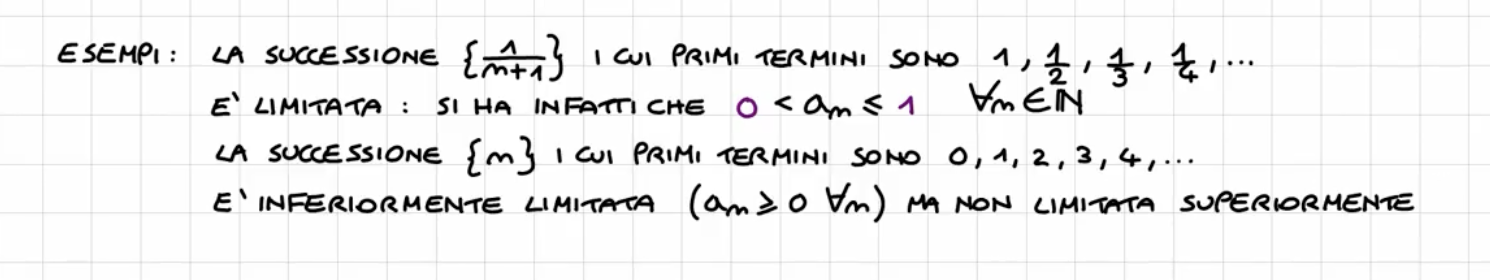 ESEMPI: LA SUCCESSIONE {1/(n+1)} I CUI PRIMI TERMINI SONO 1, 1/2, 1/3, 1/4, ...
E' LIMITATA: SI HA INFATTI CHE 0 < aₙ ≤ 1 ∀n∈ℕ
LA SUCCESSIONE {n} I CUI PRIMI TERMINI SONO 0, 1, 2, 3, 4, ...
E' INFERIORMENTE LIMITATA (aₙ ≥ 0 ∀n) MA NON LIMITATA SUPERIORMENTE